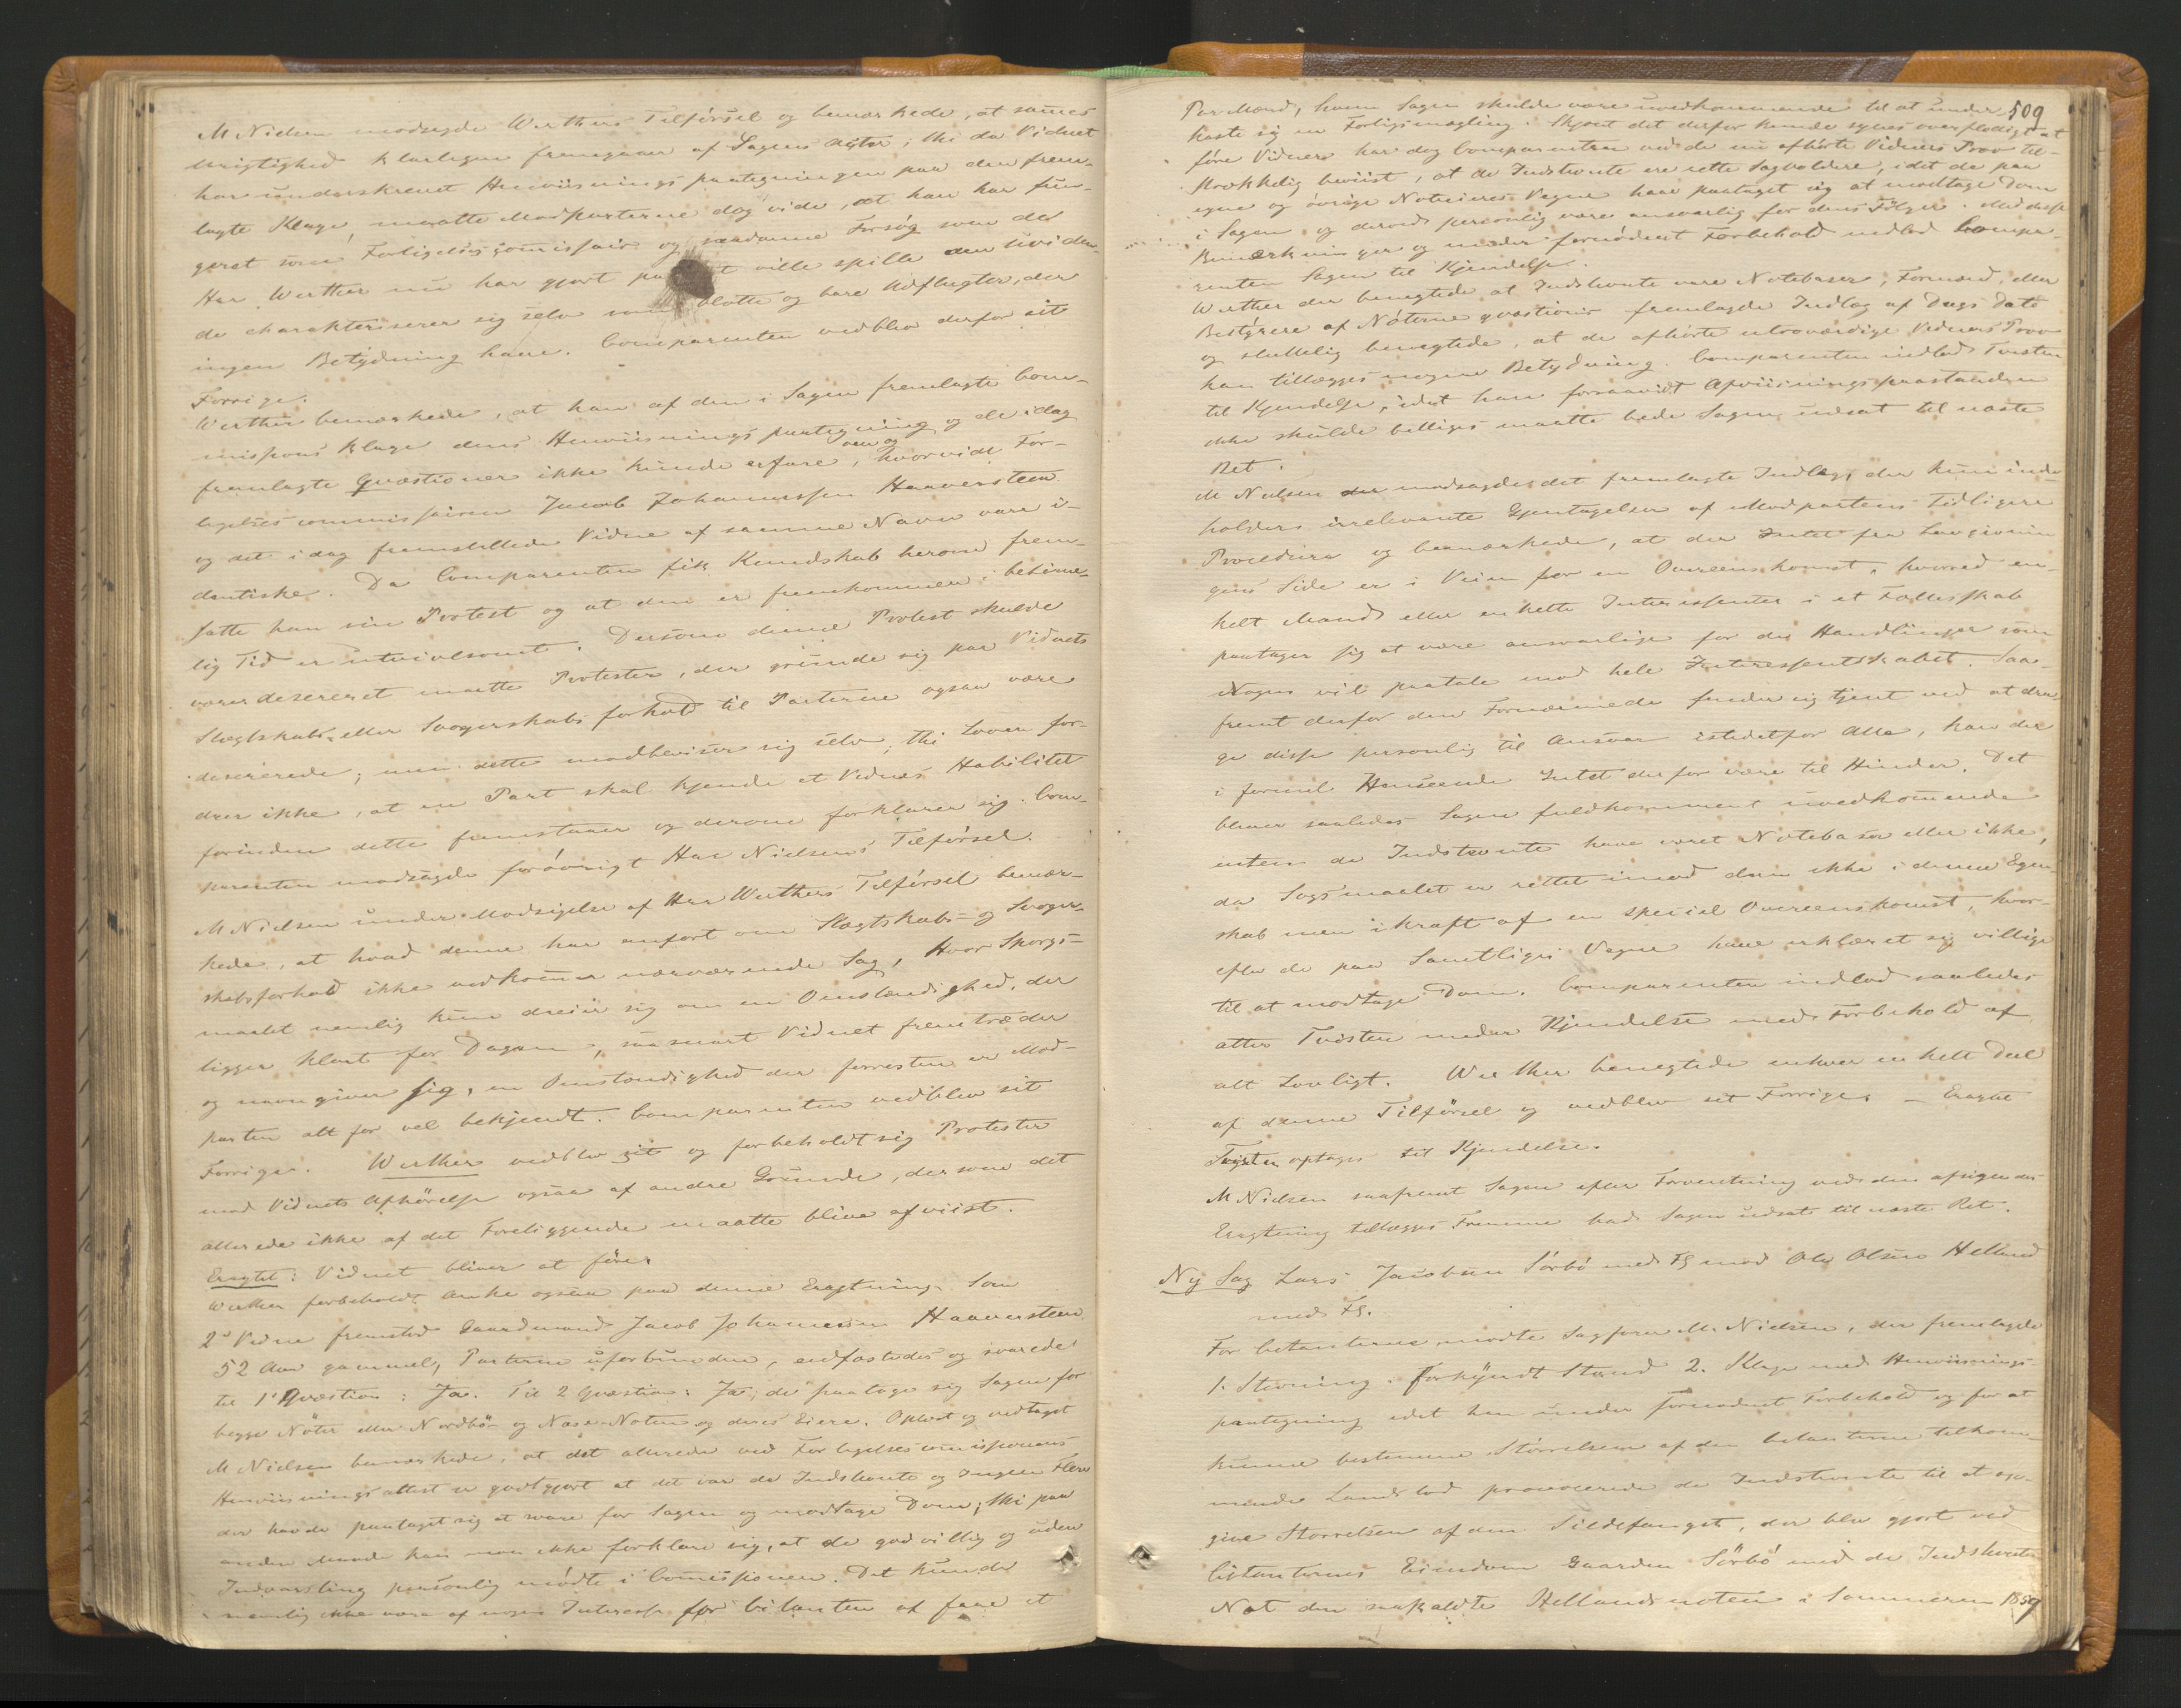 M Nielsen modsagde Werthers Tilførsel og bemærkede, at sammes
Urigtighed klarligen fremgaaer af Sagens Akter; thi da Vidnet
har underskrevet Henviisningspaategningen paa den frem-
lagte Klage, maatte Modparterne dog vide, at han har fun-
geret som Forligelsescommissair og saadanne Forsøg som det
Hr. Werther nu har gjort paa at ville spille den uviden-
de charakteriserer sig selv som blotte og bare Udflugter, der
ingen Betydning have. Comparenten vedblev derfor sit
Forrige.
Werther bemærkede, at han af den i Sagen fremlagte Com-
missions Klage dens Henviisningspaategning og de idag
fremlagte Qvæstioner ikke kunde erfare, hvorvidt For-
ligelsescommissairen Jacob Johannessen Haaversteen
og det i dag fremstillede Vidne af samme Navn vare i-
dentiske. Da Comparenten fik Kundskab herom frem-
satte han sin Protest og at den er fremkommen i betime-
lig Tid er utvivlsomt. Dersom denne Protest skulde
være deserveret maatte Protester, der grunde sig paa Vidnets
Slægtskabs- eller Svogerskabs forhold til Parterne ogsaa være
deserverede; men dette modbeviser sig selv; thi Loven for-
drer ikke, at en Part skal kjende et Vidnes Habilitet
forinden dette fremstaaer og derom forklarer sig. Com-
parenten modsagde forøvrigt Her Nielsens Tilførsel.
M Nielsen under Modsigelse af Her Werthers Tilførsel bemær-
kede, at hvad denne har anført om Slægtskabs- og Svoger-
skabsforhold ikke vedkommer nærværende Sag, hvor Spørgs-
maalet nemlig kun dreier sig om en Omstændighed, der
ligger klart for Dagen, saasnart Vidnet fremtræder
og navngiver sig, en Omstændighed der forresten er Mod-
parten alt for vel bekjendt. Comparenten vedblev sit
Forrige. Werther vedblev sit og forbeholdt sig Protester
mod Vidnets Afhørelse ogsaa af andre Grunde, dersom det
allerede ikke af det Foreliggende maatte blive afviist.
Eragtet: Vidnet bliver at føre.
Werther forbeholdt Anke ogsaa paa denne Eragtning. Som
2d Vidne fremstod Gaardmand Jacob Johannessen Haaversteen
52 Aar gammel, Parterne uforbunden, eedfæstedes og svarede
til 1ste Qvæstion: Ja. Til 2 Qvæstion: Ja, de paatoge sig Sagen for
begge Nøter eller Nordbø- og Nase-Noten og deres Eiere. Oplæst og vedtaget
M Nielsen bemærkede, at det allerede ved Forligelsescommissionens
Henviisningsattest er godtgjort at det var de Indstevnte og Ingen Flere
der havde paataget sig at svare for Sagen og modtage Dom; thi paa
anden Maade kan man ikke forklare sig, at de godvillig og uden
Indvarsling personlig mødte i Commissionen. Det kunde
nemlig ikke være af nogen Interesse for Citanten at faae et
509
Par Mænd, hvem Sagen skulde være uvedkommende til at under-
kaste sig en Forligsmægling. Skjønt det derfor kunde synes overflødigt at
føre Vidner har dog Comparenten ved de nu afhørte Vidners Prov til-
strækkelig beviist, at de Indstevnte ere rette Sagvoldere, idet de paa
egne og øvrige Noteieres Vegne have paataget sig at modtage Dom
i Sagen og derved personlig være ansvarlig for dens Følger. Med disse
Bemærkninger og under fornødent Forbehold indlod Compa-
renten Sagen til Kjendelse.
Werther der benegtede at Indstevnte vare Notebaser, Formænd, eller
Bestyrere af Nøterne qvæstionis fremlagde Indlæg af Dags Dato
og sluttelig benegtede, at de afhørte utroværdige Vidners Prov
kan tillægges nogen Betydning. Comparenten indlod Tvisten
til Kjendelse, idet han forsaavidt Afviisningspaastanden
ikke skulde billiges maatte bede Sagen udsat til næste
Ret.
M Nielsen modsagde det fremlagte Indlæg, der kun inde-
holder irrelevante Gjentagelser af Modpartens tidligere
Procedurer og bemærkede, at der Intet fra Lovgivnin-
gens Side er i Veien for en Overeenskomst, hvorved en-
kelt Mand eller enkelte Interessenter i et Fællesskab
paatager sig at være ansvarlige for de Handlinger som
Nogen vil paatale mod hele Interessentskabet. Saa-
fremt derfor den Fornærmede finder sig tjent ved at dra-
ge disse personlig til Ansvar istedetfor Alle, kan der
i formel Henseende Intet derfor være til Hinder. Det
bliver saaledes Sagen fuldkomment uvedkommende
enten de Indstevnte have været Notebaser eller ikke,
da Søgsmaalet er rettet imod dem ikke i denne Egen-
skab men i kraft af en speciel Overeenskomst, hvor-
efter de paa Samtliges Vegne have erklæret sig villige
til at modtage Dom. Comparenten indlod saaledes
atter Tvisten under Kjendelse med Forbehold af
alt Lovligt. Werther benegtede enhver enkelt Deel
af denne Tilførsel og vedblev sit Forrige. – Eragtet
Tvisten optages til Kjendelse.
M Nielsen saafremt Sagen efter Forventning ved den afsigendes
Eragtning tillægges Fremme bad Sagen udsat til næste Ret.
Ny Sag Lars Jacobsen Sørbø med Fl mod Ole Olsen Helland
med Fl.
For Citanterne mødte Sagfører M. Nielsen, der fremlagde
1. Stevning i forkyndt Stand 2. Klage med Henviisnings-
paategning idet han under fornødent Forbehold og for at
kunne bestemme Størrelsen af den Citanterne tilkom-
mende Landslod provocerede de Indstevnte til at op-
give Størrelsen af den Sildefangst, der blev gjort ved
Citanternes Eiendom Gaarden Sørbø med de Indstevntes
Not den saakaldte Hellandsnoten i Sommeren 1859